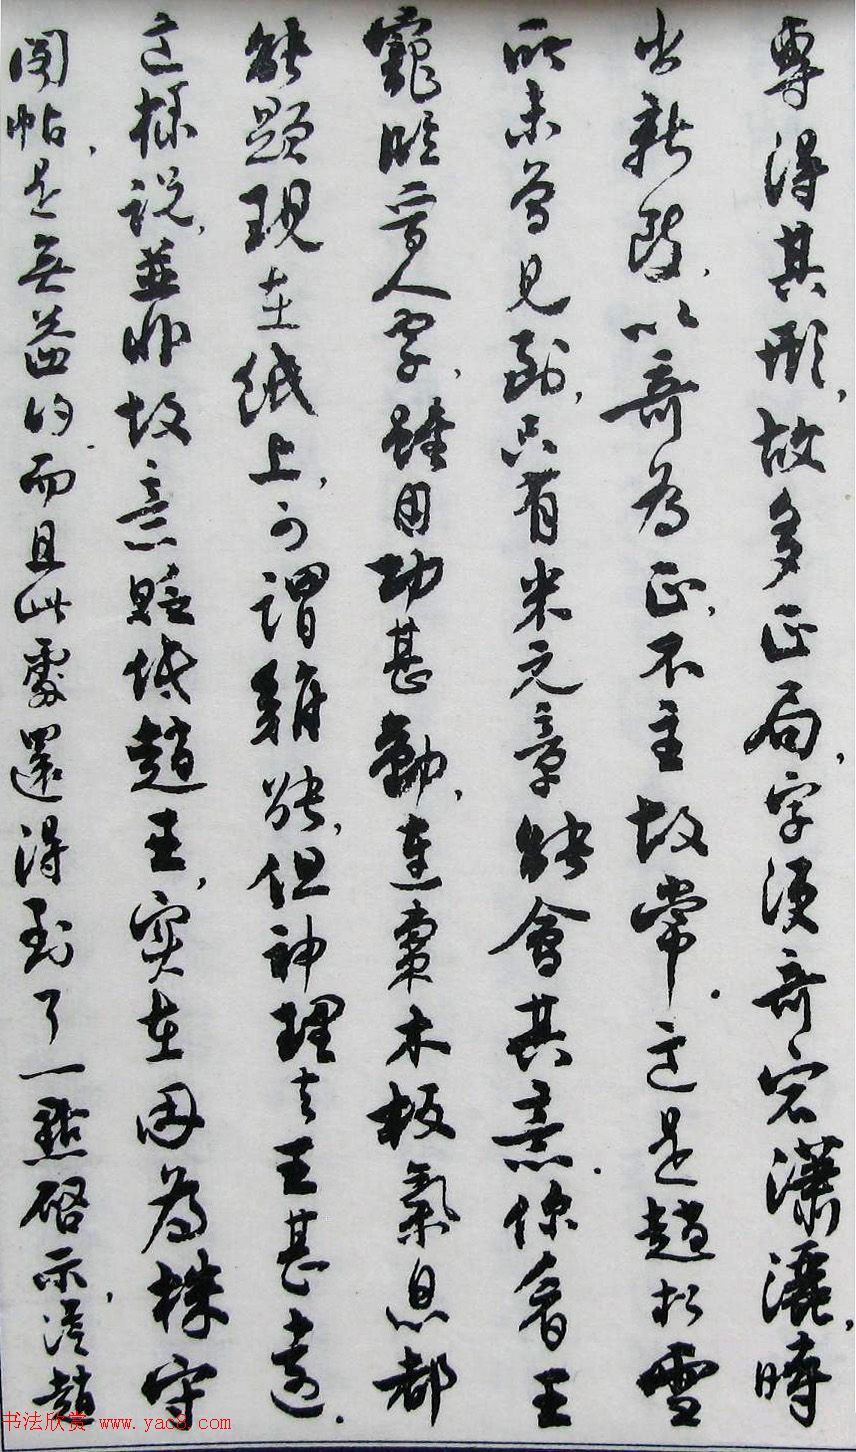 專得其形,故多正局,字便奇宕瀟灑,時
出新致,以奇為正,不主故常。這是趙松雪
所未曾見到,只有米元章能會其意。你看王
寵臨晉人字,雖用功甚勤,連棗木板氣息都
能顯現在紙上,可謂難能,但神理去王甚遠。
這樣說,並非故意貶低趙王,實在因為株守
閣帖,是無益的。而且此處還得到了一點啓示,從趙
书法欣赏 www.yac8.com